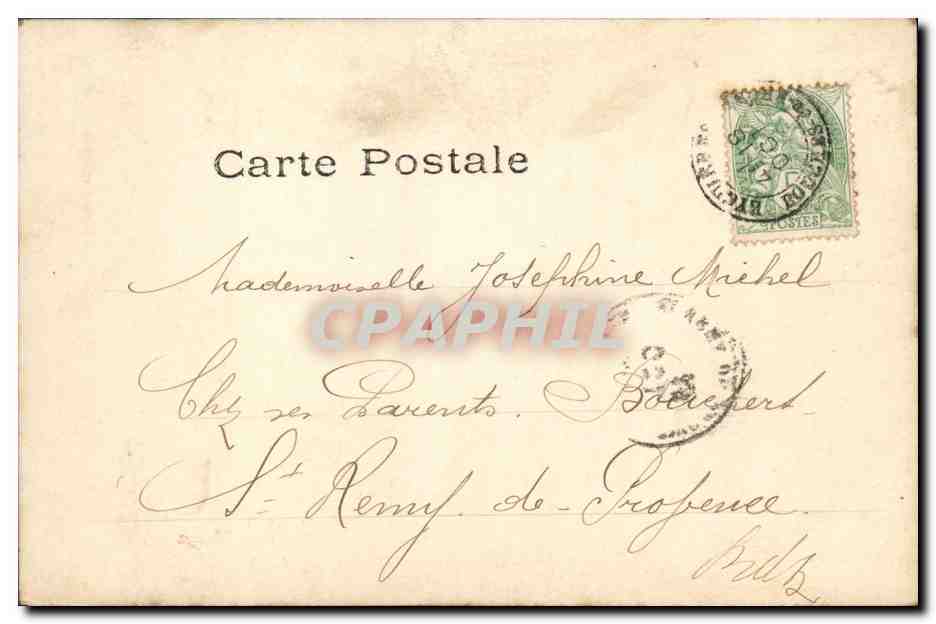 Carte Postale
POSTES
Mademoiselle Josephine Michel
CPAPHIL
Chez ses Parents.
St Remy. de-Provence.